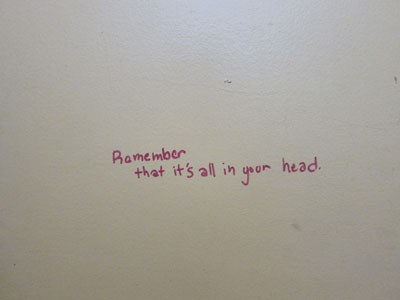 Remember
that it's all in your head.